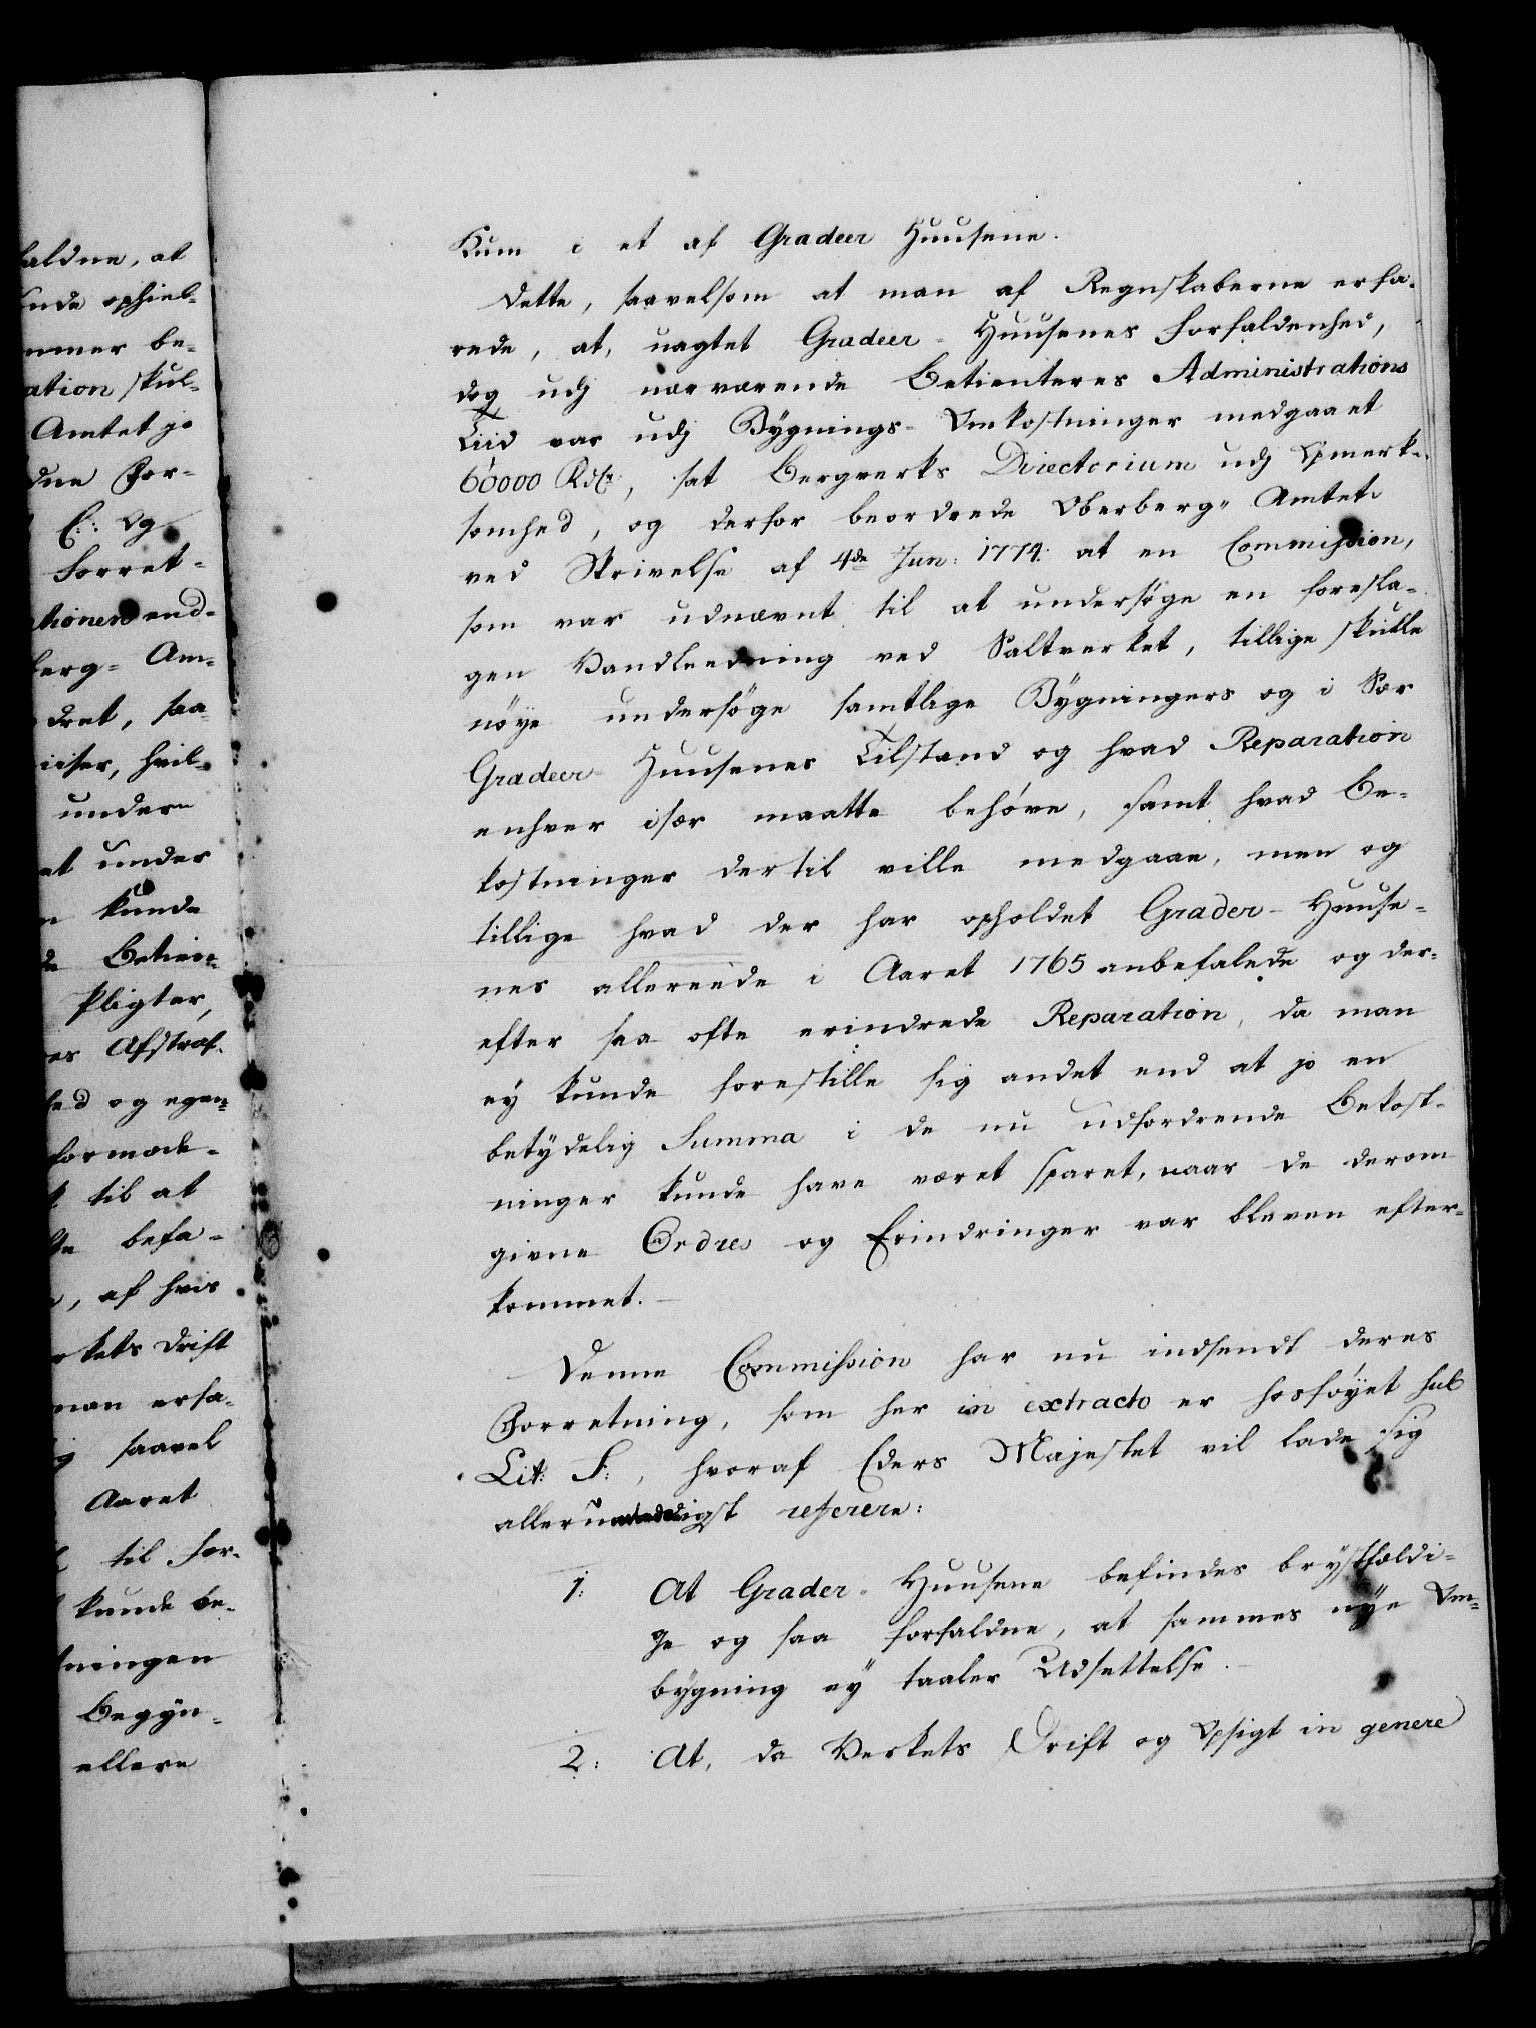 faldne, at
unde ophiel-
mmer be-
ation skul-
Amtet jo
dne For-
C: Og
Forret-
tioner end-
berg- Am-
dret, saa
iiser, hvil-
undere
at under
n kunde
de Betien-
Pligter,
es Afstraf-
hed og egen-
formode-
til at
te befa-
, af hvis
rkets Drift
man erfa-
g saavel
Aaret
til For-
kunde be-
ningen
Begyn-
ellere
Kum i et af Gradeer Huusene.
Dette, saavelsom at man af Regnskaberne erfa-
rede, at, uagtet Gradeer-Huusenes Forfaldenhed,
dog udj nærværende Betienteres Administrations
Tiid var udj Bygnings-Omkostninger medgaaet
60000 Rdlr, sat Bergverks Directorium udj Opmerk-
somhed, og derfor beordrede Oberberg-Amtet
ved Skrivelse af 4de Jun: 1774: at en Commission,
som var udnævnt til at undersøge en foresla-
gen Vandleedning ved Saltverket, tillige skulle
nöye undersøge samtlige Bygningers og i Sær
Gradeer-Huusenes Tilstand og hvad Reparation
enhver især maatte behøve, samt hvad Be-
kostninger dertil ville medgaae, men og
tillige hvad der har opholdet Grader-Huuse-
nes allereede i Aaret 1765 anbefalede og der-
efter saa ofte erindrede Reparation, da man
ey kunde forestille sig andet end at jo en
betydelig Summa i de nu udfordrende Bekost-
ninger kunde have været sparet, naar de derom
givne Ordres og Erindringer var bleven efter-
kommet.
Denne Commission har nu indsendt deres
Forretning, som her in extracto er hosföyet sub
Lit: F:, hvoraf Eders Majestet vil lade sig
allerunderdigst referere:
1: At Grader-Huusene befindes brystfældi-
ge og saa forfaldne, at sammes nye Om-
bygning ey taaler Udsettelse.
2: At, da Verkets Drift og Opsigt in genere